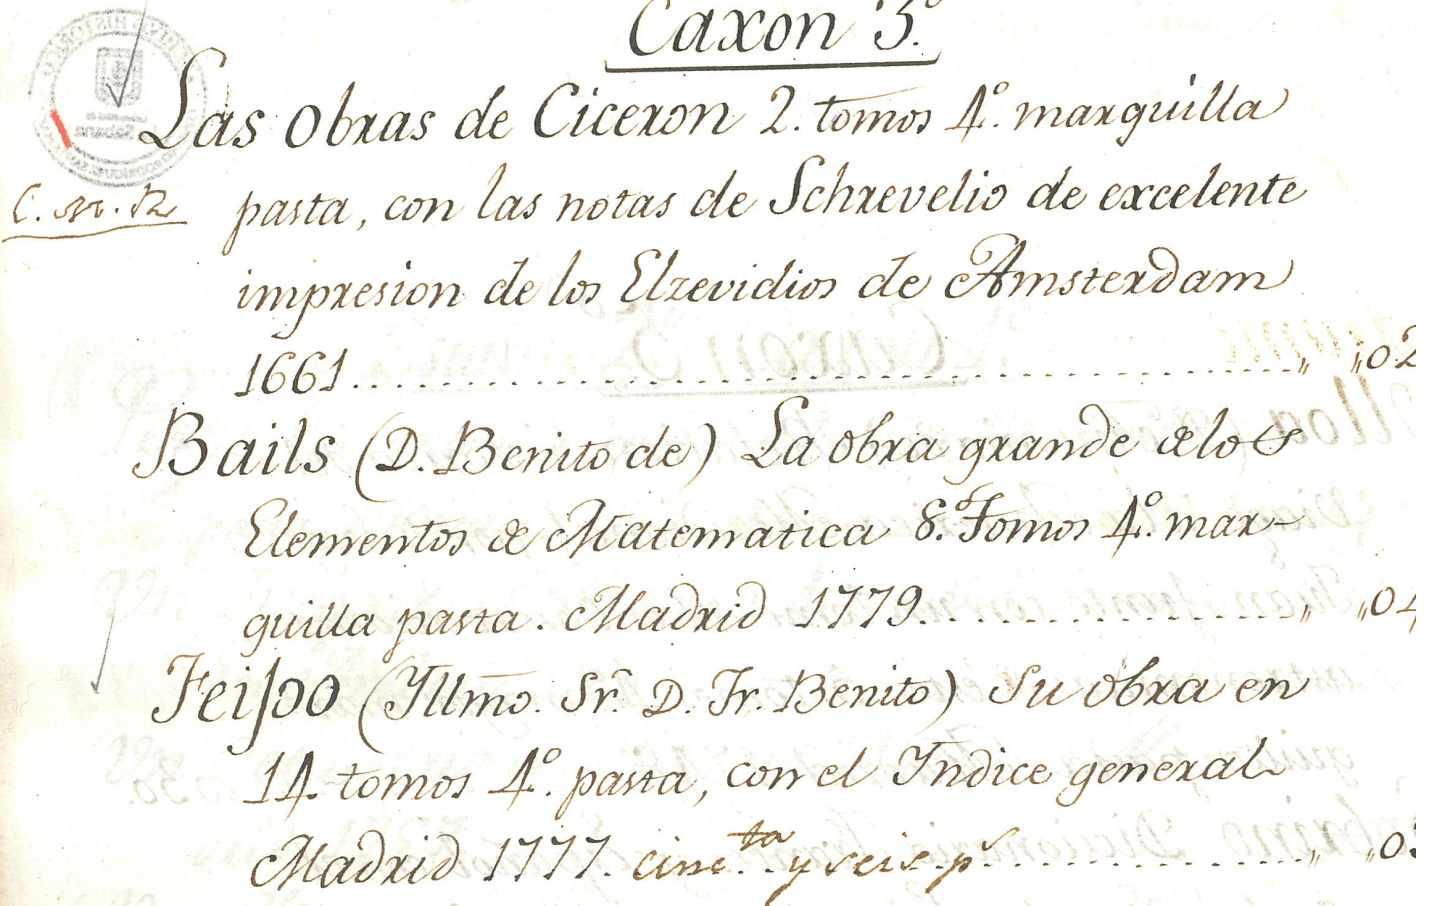 Caxon 3.º
Las Obras de Ciceron 2. tomos 4.º marquilla
C. M. R.
pasta, con las notas de Schrevelio de excelente
impresion de los Elzevidios de Amsterdam
1661 .......... „ „02
Bails (D. Benito de) La obra grande de los
Elementos de Matematica 8.º Tomos 4.º mar-
quilla pasta. Madrid 1779 .......... „ „04
Feijoo (Yllmo. Sr. D. Fr. Benito) Su obra en
14 tomos 4.º pasta, con el Yndice general
Madrid 1777. cinc.ta y seis p.s .......... „ „03